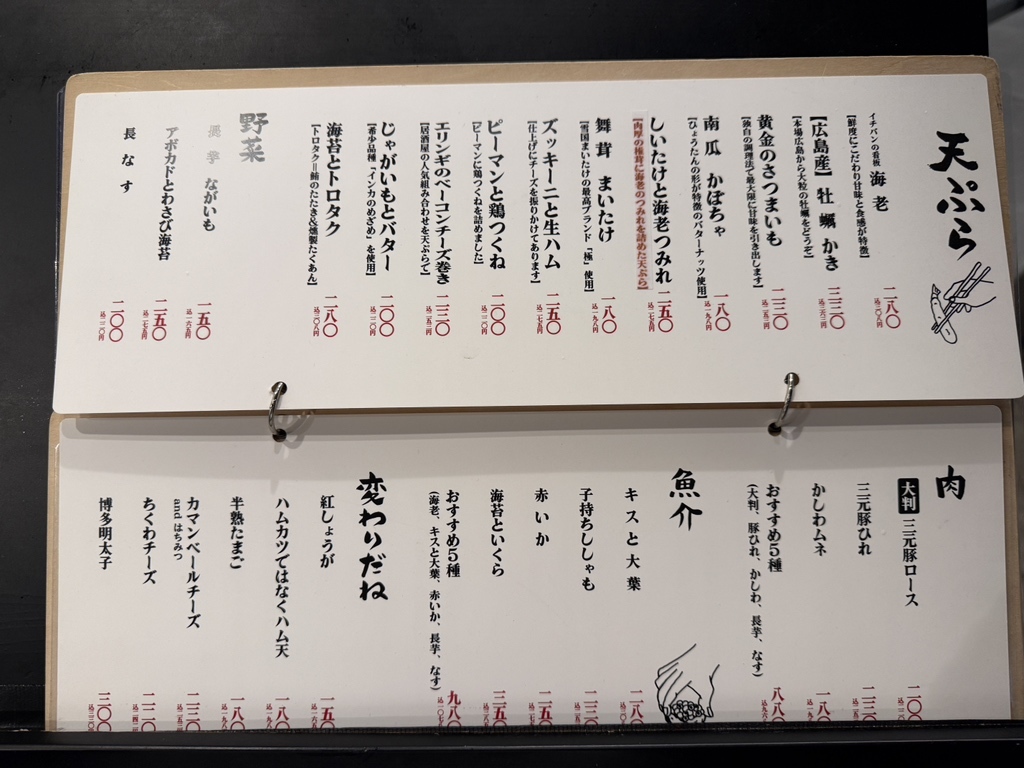 天ぷら
イチバンの看板 海老 二八〇
【鮮度にこだわり甘味と食感が特徴】 込三〇八円
【広島産】牡蠣 かき 三三〇
【本場広島から大粒の牡蠣をどうぞ】 込三六三円
黄金のさつまいも 二三〇
【独自の調理法で最大限に甘味を引き出します】 込二五三円
南瓜 かぼちゃ 一八〇
【ひょうたんの形が特徴のバターナッツ使用】 込一九八円
しいたけと海老つみれ 二五〇
【肉厚の椎茸に海老のつみれを詰めた天ぷら】 込二七五円
舞茸 まいたけ 一八〇
【雪国まいたけの最高ブランド「極」使用】 込一九八円
ズッキーニと生ハム 二五〇
【仕上げにチーズを振りかけてあります】 込二七五円
ピーマンと鶏つくね 二〇〇
【ピーマンに鶏つくねを詰めました】 込二二〇円
エリンギのベーコンチーズ巻き 二三〇
【居酒屋の人気組み合わせを天ぷらで】 込二五三円
じゃがいもとバター 二〇〇
【希少品種"インカのめざめ"を使用】 込二二〇円
海苔とトロタク 二八〇
【トロタク=鮪のたたき&燻製たくあん】 込三〇八円
野菜
長芋 ながいも 一五〇
込一六五円
アボカドとわさび海苔 二五〇
込二七五円
長なす 二〇〇
込二二〇円
肉
大判 三元豚ロース 二〇〇
三元豚ひれ 二三〇
かしわムネ 一八〇
おすすめ5種 八八〇
(大判、豚ひれ、かしわ、長芋、なす)
魚介
キスと大葉 二八〇
子持ちししゃも 二三〇
赤いか 二五〇
海苔といくら 三五〇
おすすめ5種 九八〇
(海老、キスと大葉、赤いか、長芋、なす)
変わりだね
紅しょうが 一五〇
ハムカツではなくハム天 一八〇
半熟たまご 一八〇
カマンベールチーズ 二三〇
and はちみつ
ちくわチーズ 二二〇
博多明太子 三〇〇